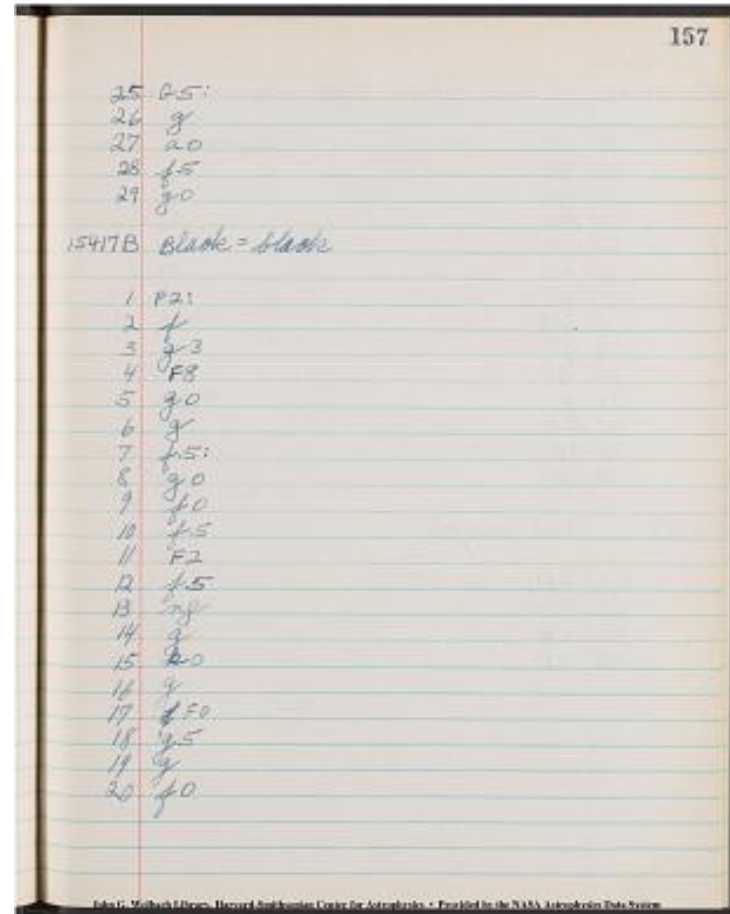 157
25 G5:
26 g
27 a0
28 f5
29 g0
15417B Black = black
1 F2:
2 f
3 g3
4 F8
5 g0
6 g
7 f5:
8 g0
9 f0
10 f5
11 F2
12 f5
13
14 g
15 k0
16 g
17 F0
18 g5
19 g
20 f0
John G. Wolbach Library, Harvard-Smithsonian Center for Astrophysics • Provided by the NASA Astrophysics Data System